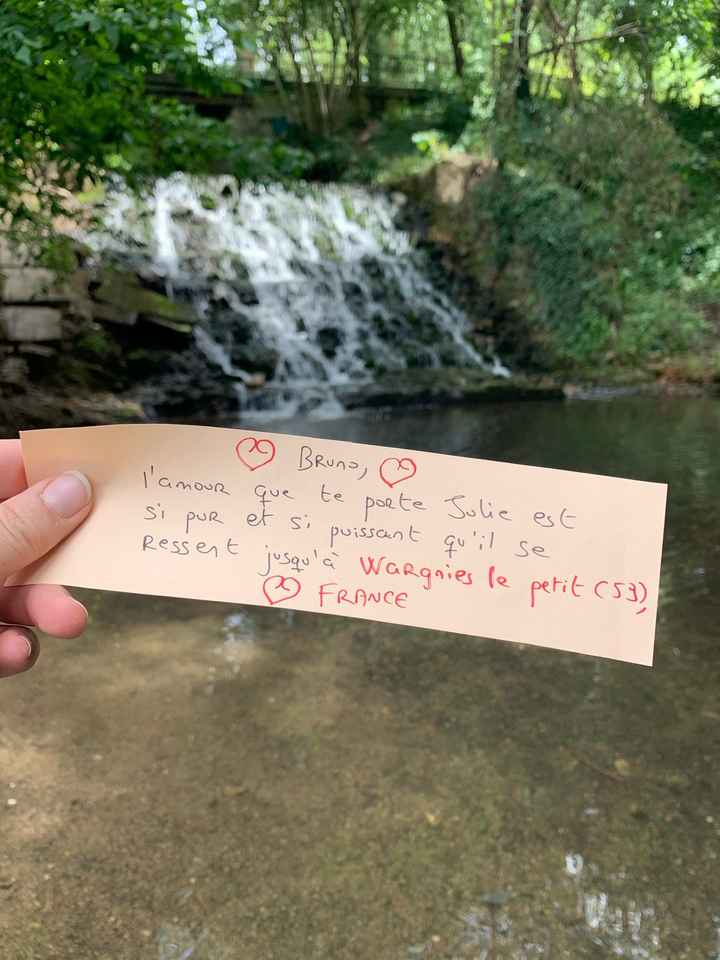 Bruno,
l'amour que te porte Julie est
si pur et si puissant qu'il se
Ressent jusqu'à Wargnies le petit (59),
FRANCE